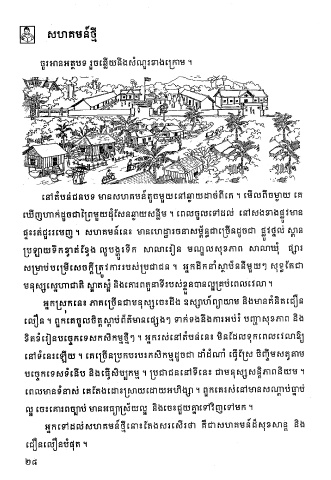 សហគមន៍ថ្មី
ចូរអានអត្ថបទ រួចឆ្លើយនឹងសំណួរខាងក្រោម ។
នៅតំបន់ជនបទ មានសហគមន៍តូចមួយនៅឆ្ងាយដាច់ពីគេ ។ មើលពីចម្ងាយ គេ
ឃើញហាក់ដូចជាព្រៃមួយដុំសែនឆ្ងាយសន្លឹម ។ ពេលចូលទៅដល់ នៅសងខាងផ្លូវមាន
ផ្ទះរាត់ផ្ទះរញេញ ។ សហគមន៍នេះ មានហេដ្ឋារចនាសម្ព័ន្ធជាច្រើនដូចជា ផ្លូវថ្នល់ ស្ពាន
ប្រឡាយទឹកខ្វាត់ខ្វែង លូបង្ហូរទឹក សាលារៀន មណ្ឌលសុខភាព សាលាឃុំ ផ្សារ
សម្រាប់បម្រើសេចក្តីត្រូវការរបស់ប្រជាជន ។ អ្នកដឹកនាំស្ថាប័ននីមួយៗ សុទ្ធតែជា
មនុស្សស្មោះជាតិ ស្អាតស្អំ និងគោរពតួនាទីរបស់ខ្លួនបានល្អគ្រប់ពេលវេលា ។
អ្នកស្រុកនេះ ភាគច្រើនជាមនុស្សចេះដឹង ឧស្សាហ៍ព្យាយាម និងមានគំនិតជឿន
លឿន ។ ពួកគេចូលចិត្តស្ដាប់ព័ត៌មានផ្សេងៗ ទាក់ទងនឹងការអប់រំ បញ្ហាសុខភាព និង
ខិតខំរៀនបច្ចេកទេសកសិកម្មថ្មីៗ ។ អ្នករស់នៅតំបន់នេះ មិនដែលទុកពេលវេលាឱ្យ
នៅទំនេរឡើយ ។ គេច្រើនប្រកបរបរកសិកម្មដូចជា ដាំដំណាំ ធ្វើស្រែ ចិញ្ចឹមសត្វតាម
បច្ចេកទេសទំនើប និងធ្វើសិប្បកម្ម ។ ប្រជាជននៅទីនេះ ជាមនុស្សសន្តិភាពនិយម ។
ពេលមានទំនាស់ គេតែងដោះស្រាយដោយអហិង្សា ។ ពួកគេរស់នៅមានសណ្ដាប់ធ្នាប់
ល្អ ចេះគោរពច្បាប់ មានអធ្យាស្រ័យល្អ និងចេះជួយគ្នាទៅវិញទៅមក ។
អ្នកទៅដល់សហគមន៍ថ្មីនោះតែងសរសើរថា គឺជាសហគមន៍ដ៏សុខសាន្ត និង
ជឿនលឿនបំផុត ។
២៨